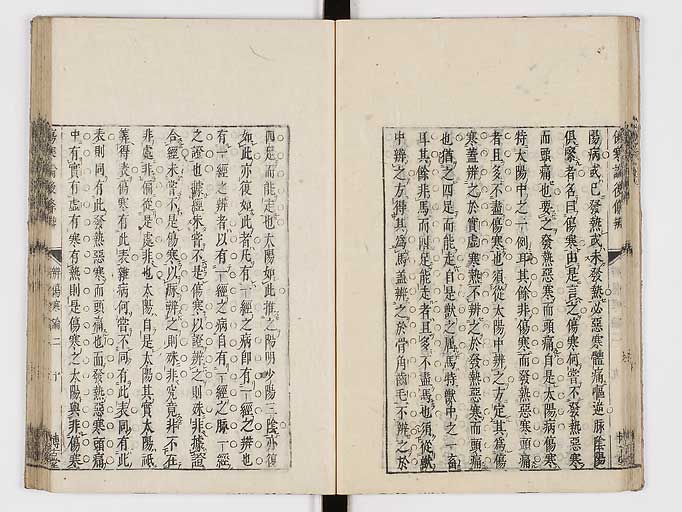 陽病或已發熱或未發熱必惡寒體痛嘔逆脉陰陽
俱緊者名曰傷寒由是言之傷寒何嘗不發熱惡寒
而頭痛也要之發熱惡寒而頭痛自是太陽病傷寒
特太陽中之一例耳其餘非傷寒而發熱惡寒頭痛
者且多不盡傷寒也須從太陽中辨之方定其爲傷
寒蓋辨之於實虛寒熱不辨之於發熱惡寒而頭痛
也猶之四足而能走自是獸之屬馬特獸中之一畜
耳其餘非馬而四足能走者且多不盡馬也須從獸
中辨之方得其爲馬蓋辨之於骨角齒毛不辨之於
四足而能走也太陽如此推之陽明少陽三陰亦復
如此亦復如此者凡有一經之病卽有一經之辨也
有一經之辨者以有一經之病自有一經之脉一經
之證也據經未嘗不是傷寒以證辨之則殊非據證
合經未嘗不是傷寒以脉辨之則殊非究竟非不在
非處非偏從是處非也太陽自是太陽其實太陽祇
筭得表傷寒有此表雜病何嘗不同有此表同有此
表則同有此發熱惡寒而頭痛也而發熱惡寒頭痛
中有實有虛有寒有熱則是傷寒之太陽與非傷寒
辨傷寒論二